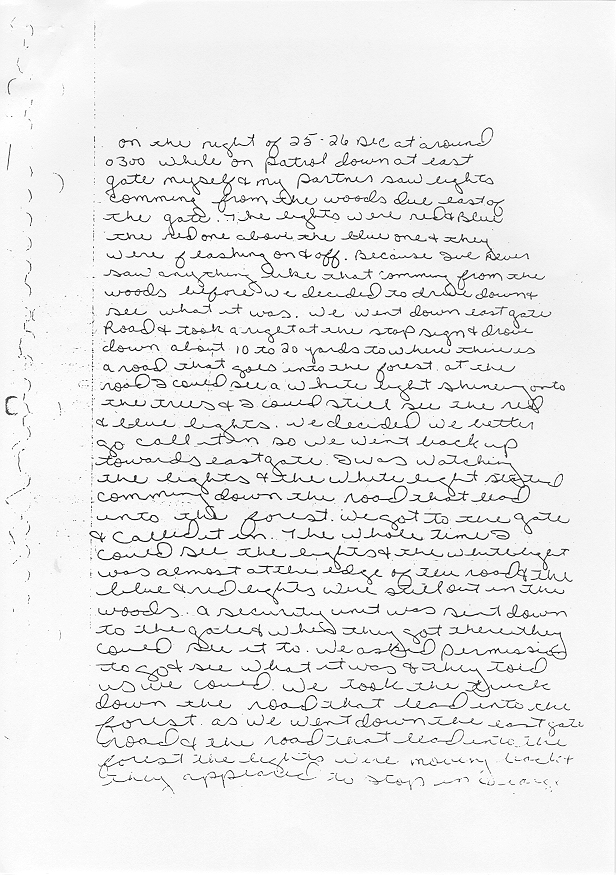 on the night of 25-26 Dec at around
0300 while on patrol down at east
gate myself & my partner saw lights
comming from the woods due east of
the gate. The lights were red & Blue
the red one above the blue one & they
were flashing on & off. Because I've never
saw anything like that comming from the
woods before we decided to drive down &
see what it was. We went down east gate
Road & took a right at the stop sign & drove
down about 10 to 20 yards to where there is
a road that goes into the forest. at the
road I could see a white light shining onto
the trees & I could still see the red
& blue lights. We decided we better
go call it in so we went back up
towards east gate. I was watching
the lights & the white light started
comming down the road that lead
into the forest. We got to the gate
& called it in. The whole time I
could see the lights & the white light
was almost at the edge of the road & the
blue & red lights were still out in the
woods. a security unit was sent down
to the gate & when they got there they
could see it to. We asked permission
to go & see what it was & they told
us we could. We took the truck
down the road that lead into the
forest. as we went down the east gate
road & the road that lead into the
forest the lights were moving back &
they appeared to stop in